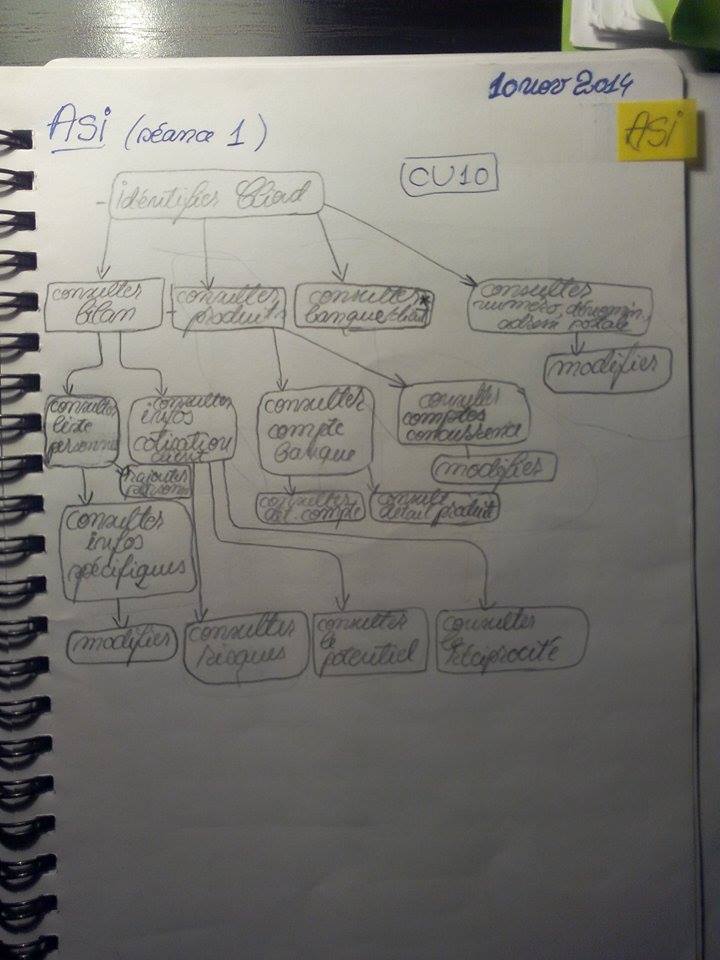 10 nov 2014
ASi (séance 1)
ASi
CU10
- identifier Client
consulter
bilan
consulter
produit
consulter
banque
consulter
numéro, dénomin.
adresse postale
modifier
consulter
liste
personne
consulter
infos
cotisation
rajouter
personne
consulter
compte
banque
consulter
comptes
concurrence
modifier
consulter
dét. compte
consulter
détail produit
consulter
infos
spécifiques
modifier
consulter
risques
consulter
le
potentiel
consulter
la
réciprocité